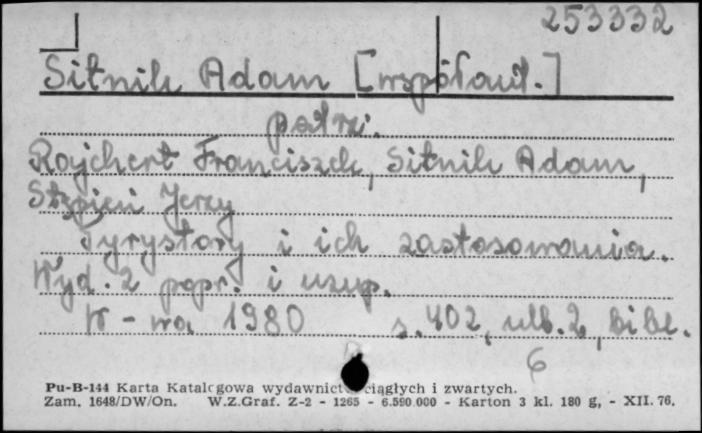 253332
Sitnik Adam [współaut.]
patrz:
Rojchert Franciszek, Sitnik Adam,
Stępień Jerzy
Tyrystory i ich zastosowania.
Wyd. 2 popr. i uzup.
W-wa 1980 s. 402, ulb. 2, bibl.
6
Pu-B-144 Karta Katalogowa wydawnictw ciągłych i zwartych.
Zam. 1648/DW/On. W.Z.Graf. Z-2 - 1265 - 6.590.000 - Karton 3 kl. 180 g, - XII. 76.